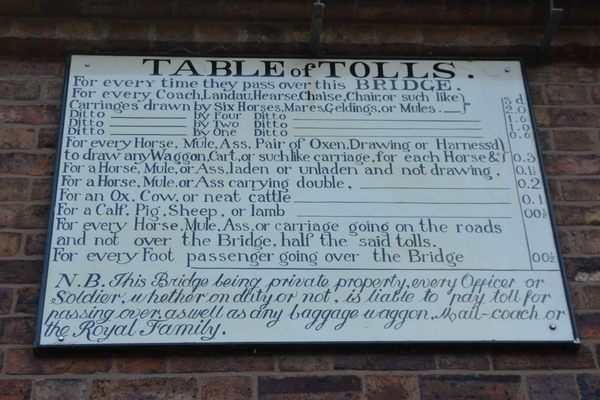 TABLE of TOLLS.
For every time they pass over this BRIDGE.
For every Coach, Landau, Hearse, Chaise, Chair, or such like
Carriages drawn by Six Horses, Mares, Geldings, or Mules. s d 2.0
Ditto by Four Ditto 1.6
Ditto by Two Ditto 1.0
Ditto by One Ditto 0.6
For every Horse, Mule, Ass, Pair of Oxen, Drawing or Harnessd
to draw any Waggon, Cart, or such like carriage, for each Horse &c 0.3
For a Horse, Mule, or Ass, laden or unladen and not drawing, 0.1½
For a Horse, Mule, or Ass carrying double, 0.2
For an Ox, Cow, or neat cattle 0.1
For a Calf, Pig, Sheep, or lamb 00½
For every Horse, Mule, Ass, or carriage going on the roads
and not over the Bridge, half the said tolls.
For every Foot passenger going over the Bridge 00½
N.B. This Bridge being private property, every Officer or
Soldier, whether on duty or not, is liable to pay toll for
passing over, as well as any baggage waggon, Mail-coach or
the Royal Family.